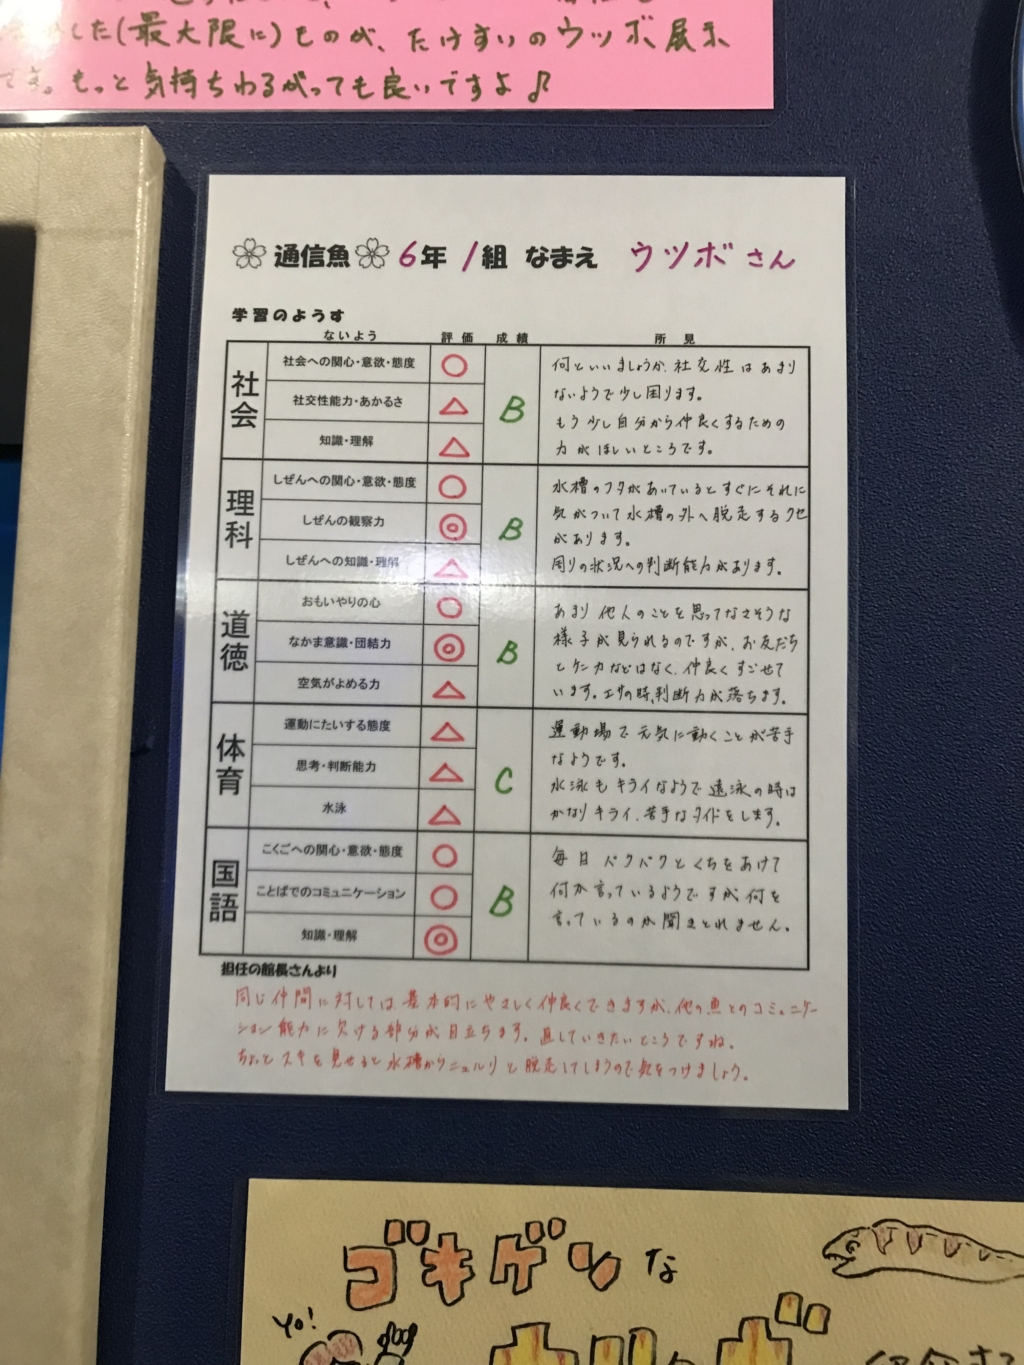 した(最大限に)ものが、たけすいのウツボ展示
です。もっと気持ちわるがっても良いですよ♪
通信魚 6年 1組 なまえ ウツボさん
学習のようす
ないよう 評価 成績 所見
社会
社会への関心・意欲・態度 ○
社交性能力・あかるさ △
知識・理解 △
B
何といいましょうか、社交性はあまり
ないようで少し困ります。
もう少し自分から仲良くするための
力がほしいところです。
理科
しぜんへの関心・意欲・態度 ○
しぜんの観察力 ◎
しぜんへの知識・理解 △
B
水槽のフタがあいているとすぐにそれに
気がついて水槽の外へ脱走するクセ
があります。
周りの状況への判断能力があります。
道徳
おもいやりの心 ○
なかま意識・団結力 ◎
空気がよめる力 △
B
あまり他人のことを思ってなさそうな
様子が見られるのですが、お友だち
とケンカなどはなく、仲良くすごせて
います。エサの時、判断力が落ちます。
体育
運動にたいする態度 △
思考・判断能力 △
水泳 △
C
運動場で元気に動くことが苦手
なようです。
水泳もキライなようで遠泳の時は
かなりキライ、苦手なタイドをします。
国語
こくごへの関心・意欲・態度 ○
ことばでのコミュニケーション ○
知識・理解 ◎
B
毎日パクパクとくちをあけて
何か言っているようですが何を
言っているのか聞きとれません。
担任の館長さんより
同じ仲間に対しては、基本的にやさしく仲良くできますが、他の魚とのコミュニケー
ション能力に欠ける部分が目立ちます。直していきたいところですね。
ちょっとスキを見せると水槽からニュルリと脱走してしまうので気をつけましょう。
ゴキゲンな
Yo!